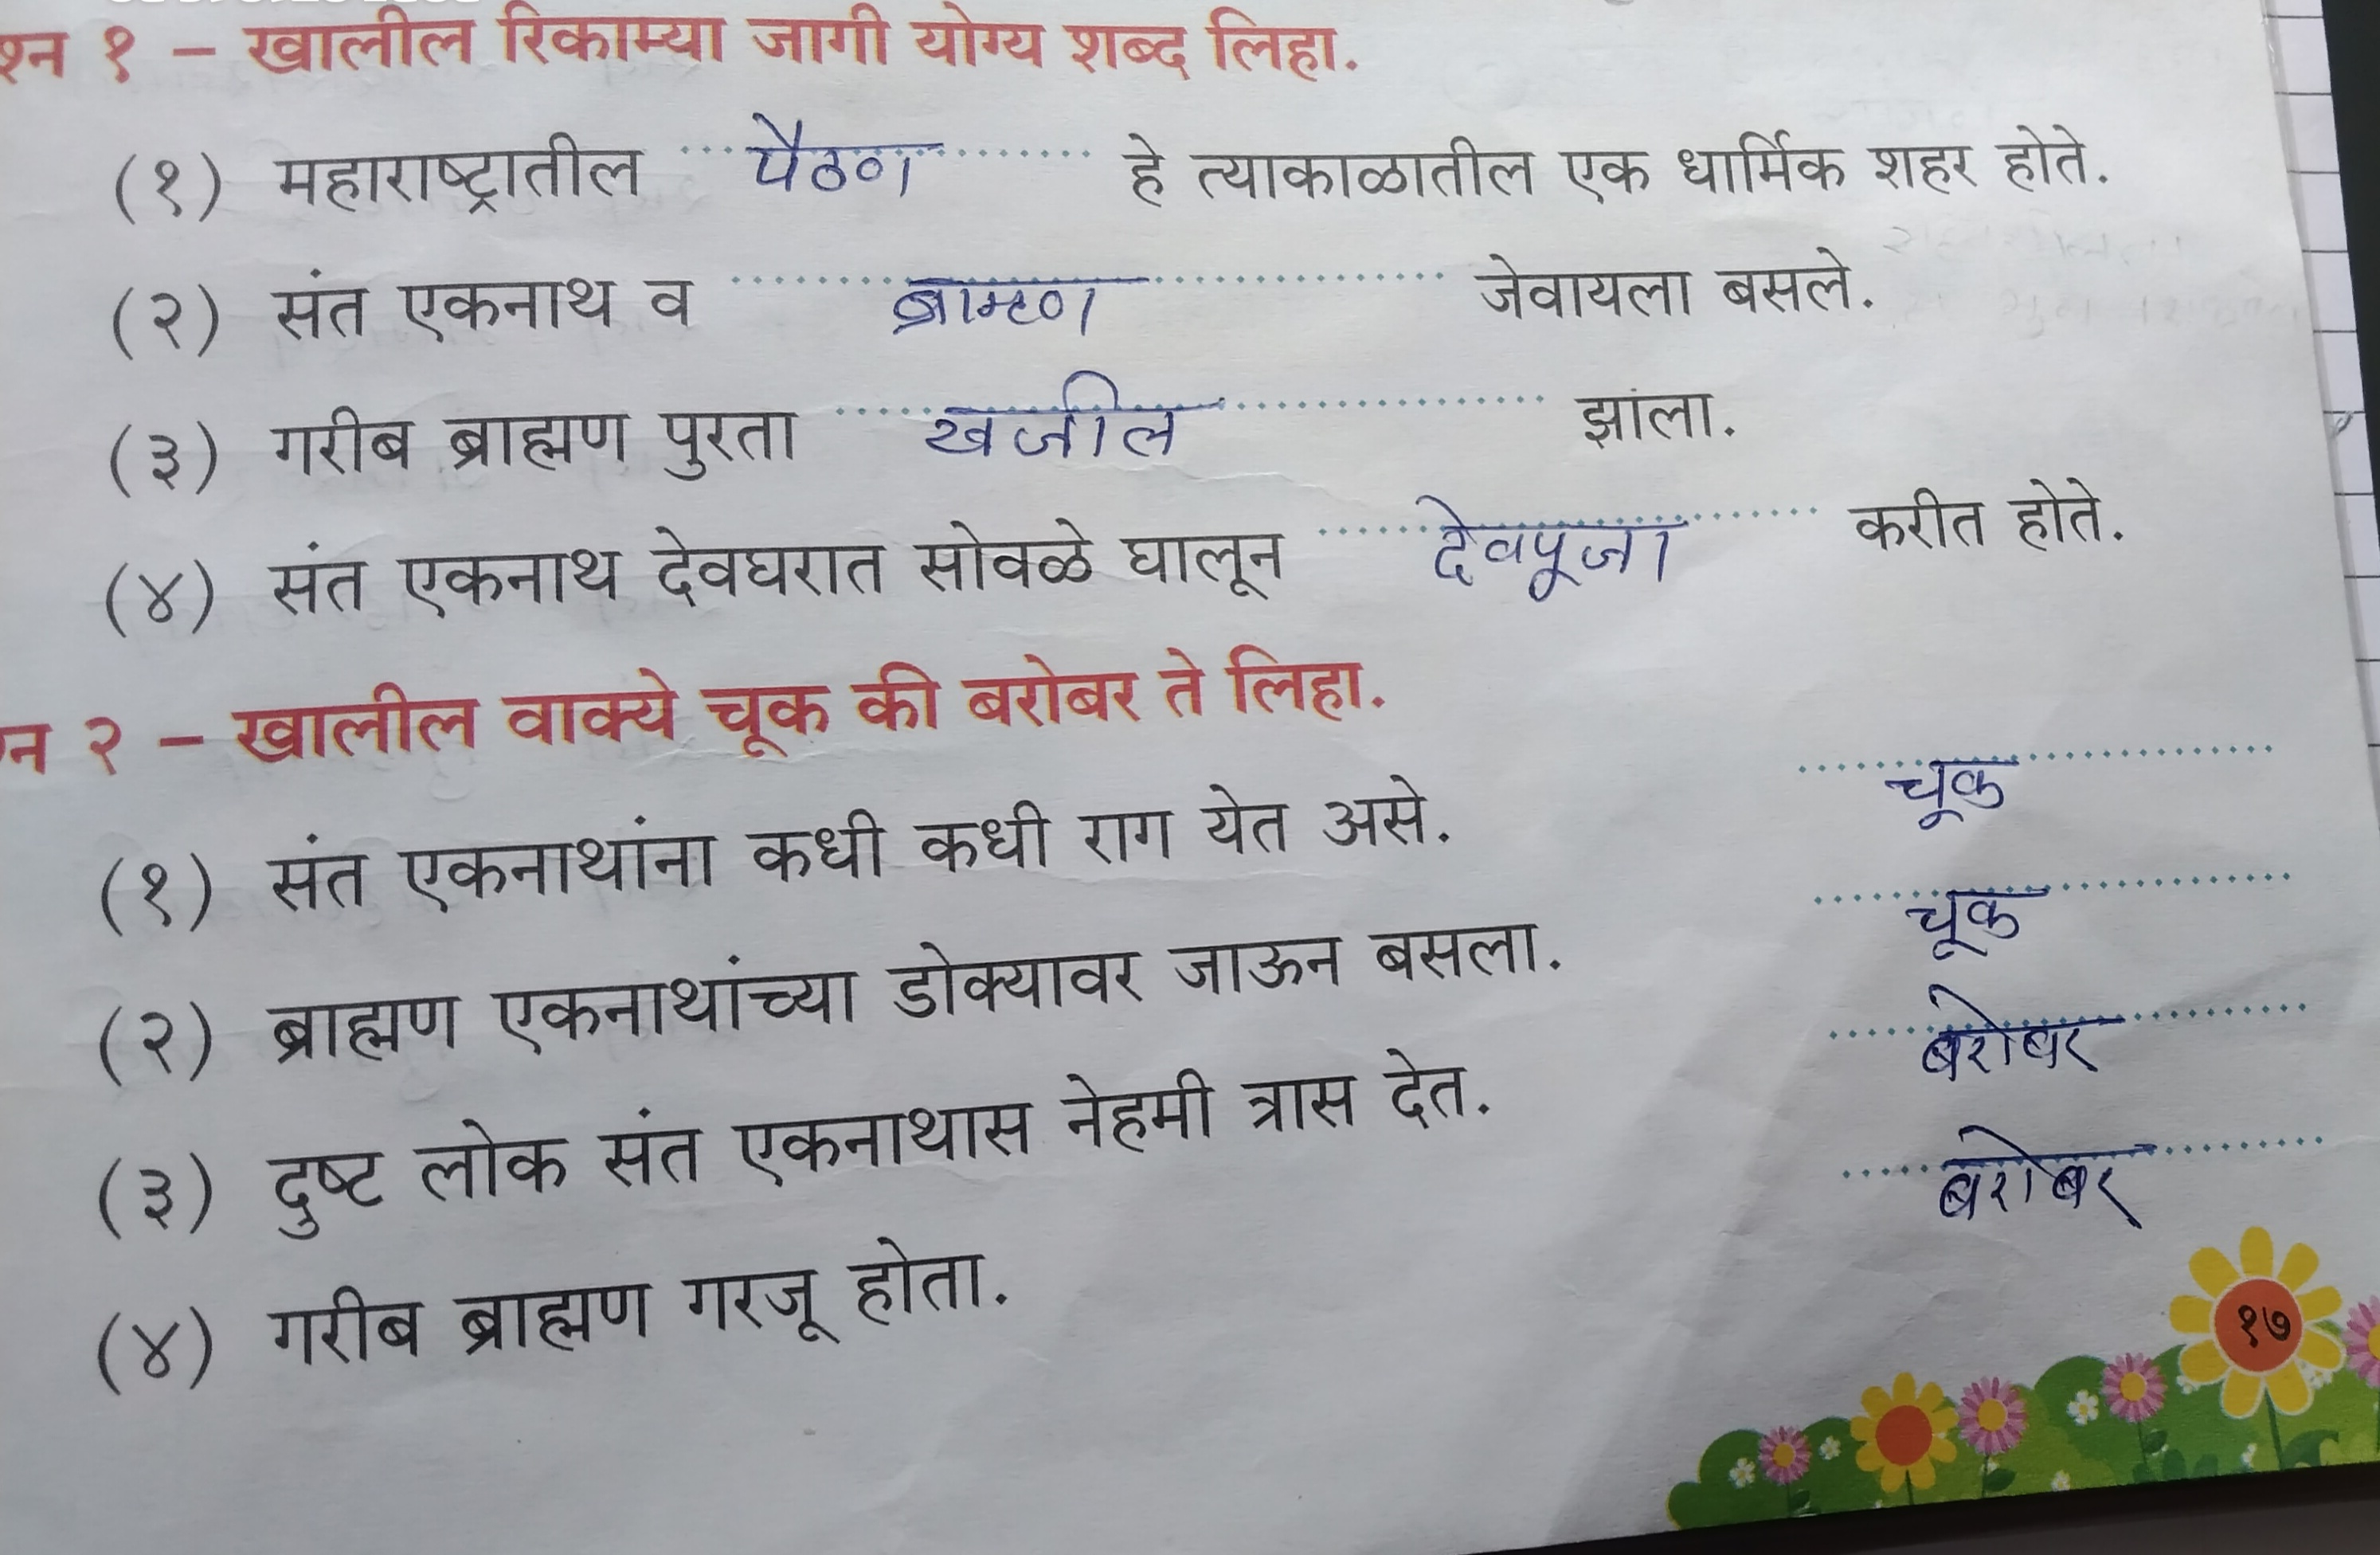 श्न १ – खालील रिकाम्या जागी योग्य शब्द लिहा.
(१) महाराष्ट्रातील पैठण हे त्याकाळातील एक धार्मिक शहर होते.
(२) संत एकनाथ व ब्राम्हण जेवायला बसले.
(३) गरीब ब्राह्मण पुरता खजील झाला.
(४) संत एकनाथ देवघरात सोवळे घालून देवपूजा करीत होते.
न २ – खालील वाक्ये चूक की बरोबर ते लिहा.
(१) संत एकनाथांना कधी कधी राग येत असे. चूक
(२) ब्राह्मण एकनाथांच्या डोक्यावर जाऊन बसला. चूक
(३) दुष्ट लोक संत एकनाथास नेहमी त्रास देत. बरोबर
(४) गरीब ब्राह्मण गरजू होता. बरोबर
१७